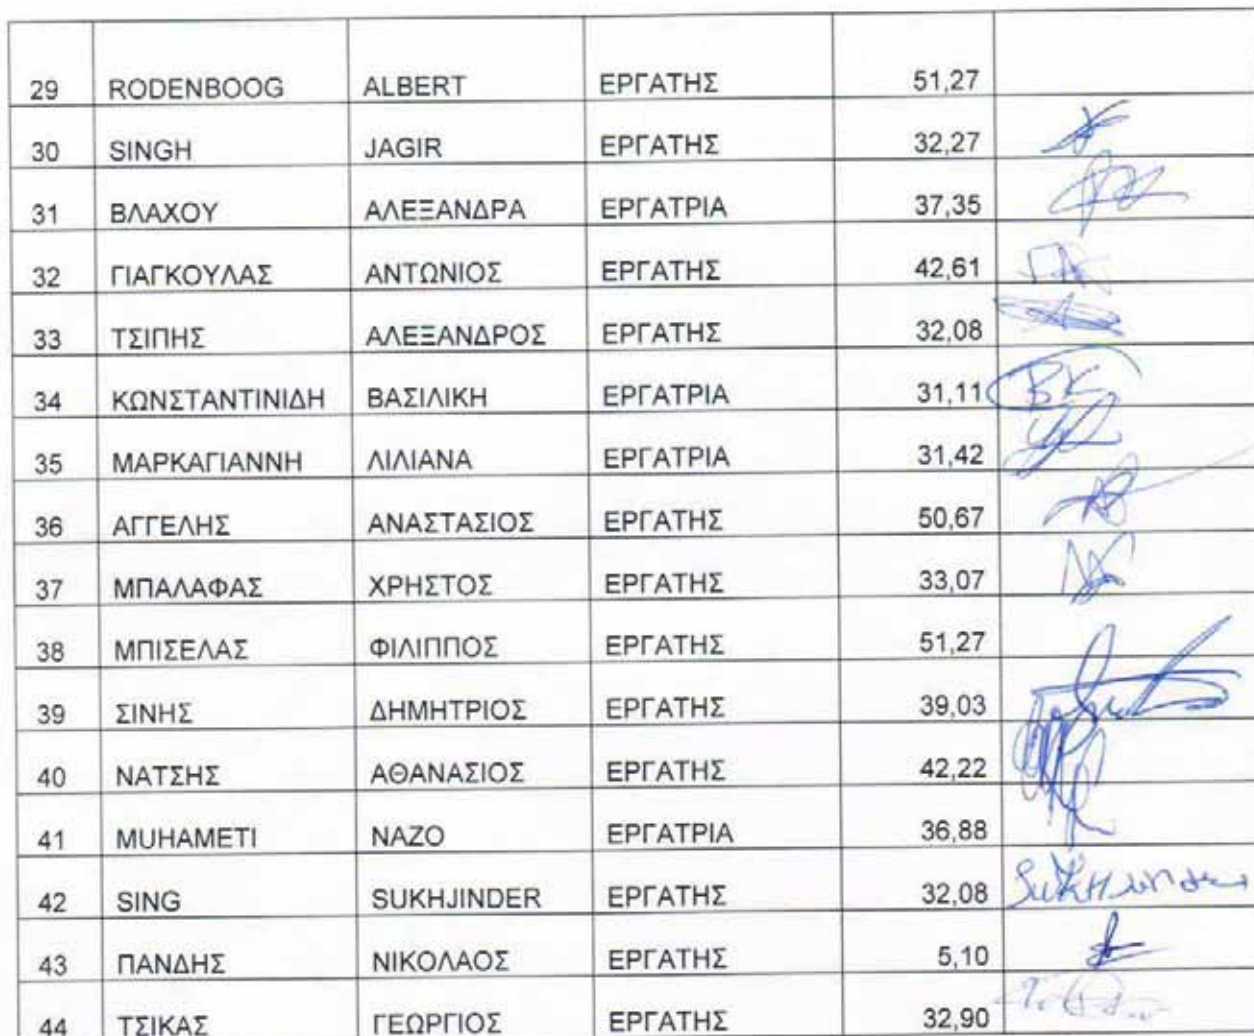 29 RODENBOOG ALBERT ΕΡΓΑΤΗΣ 51,27
30 SINGH JAGIR ΕΡΓΑΤΗΣ 32,27
31 ΒΛΑΧΟΥ ΑΛΕΞΑΝΔΡΑ ΕΡΓΑΤΡΙΑ 37,35
32 ΓΙΑΓΚΟΥΛΑΣ ΑΝΤΩΝΙΟΣ ΕΡΓΑΤΗΣ 42,61
33 ΤΣΙΠΗΣ ΑΛΕΞΑΝΔΡΟΣ ΕΡΓΑΤΗΣ 32,08
34 ΚΩΝΣΤΑΝΤΙΝΙΔΗ ΒΑΣΙΛΙΚΗ ΕΡΓΑΤΡΙΑ 31,11
35 ΜΑΡΚΑΓΙΑΝΝΗ ΛΙΛΙΑΝΑ ΕΡΓΑΤΡΙΑ 31,42
36 ΑΓΓΕΛΗΣ ΑΝΑΣΤΑΣΙΟΣ ΕΡΓΑΤΗΣ 50,67
37 ΜΠΑΛΑΦΑΣ ΧΡΗΣΤΟΣ ΕΡΓΑΤΗΣ 33,07
38 ΜΠΙΣΕΛΑΣ ΦΙΛΙΠΠΟΣ ΕΡΓΑΤΗΣ 51,27
39 ΣΙΝΗΣ ΔΗΜΗΤΡΙΟΣ ΕΡΓΑΤΗΣ 39,03
40 ΝΑΤΣΗΣ ΑΘΑΝΑΣΙΟΣ ΕΡΓΑΤΗΣ 42,22
41 MUHAMETI NAZO ΕΡΓΑΤΡΙΑ 36,88
42 SING SUKHJINDER ΕΡΓΑΤΗΣ 32,08
43 ΠΑΝΔΗΣ ΝΙΚΟΛΑΟΣ ΕΡΓΑΤΗΣ 5,10
44 ΤΣΙΚΑΣ ΓΕΩΡΓΙΟΣ ΕΡΓΑΤΗΣ 32,90